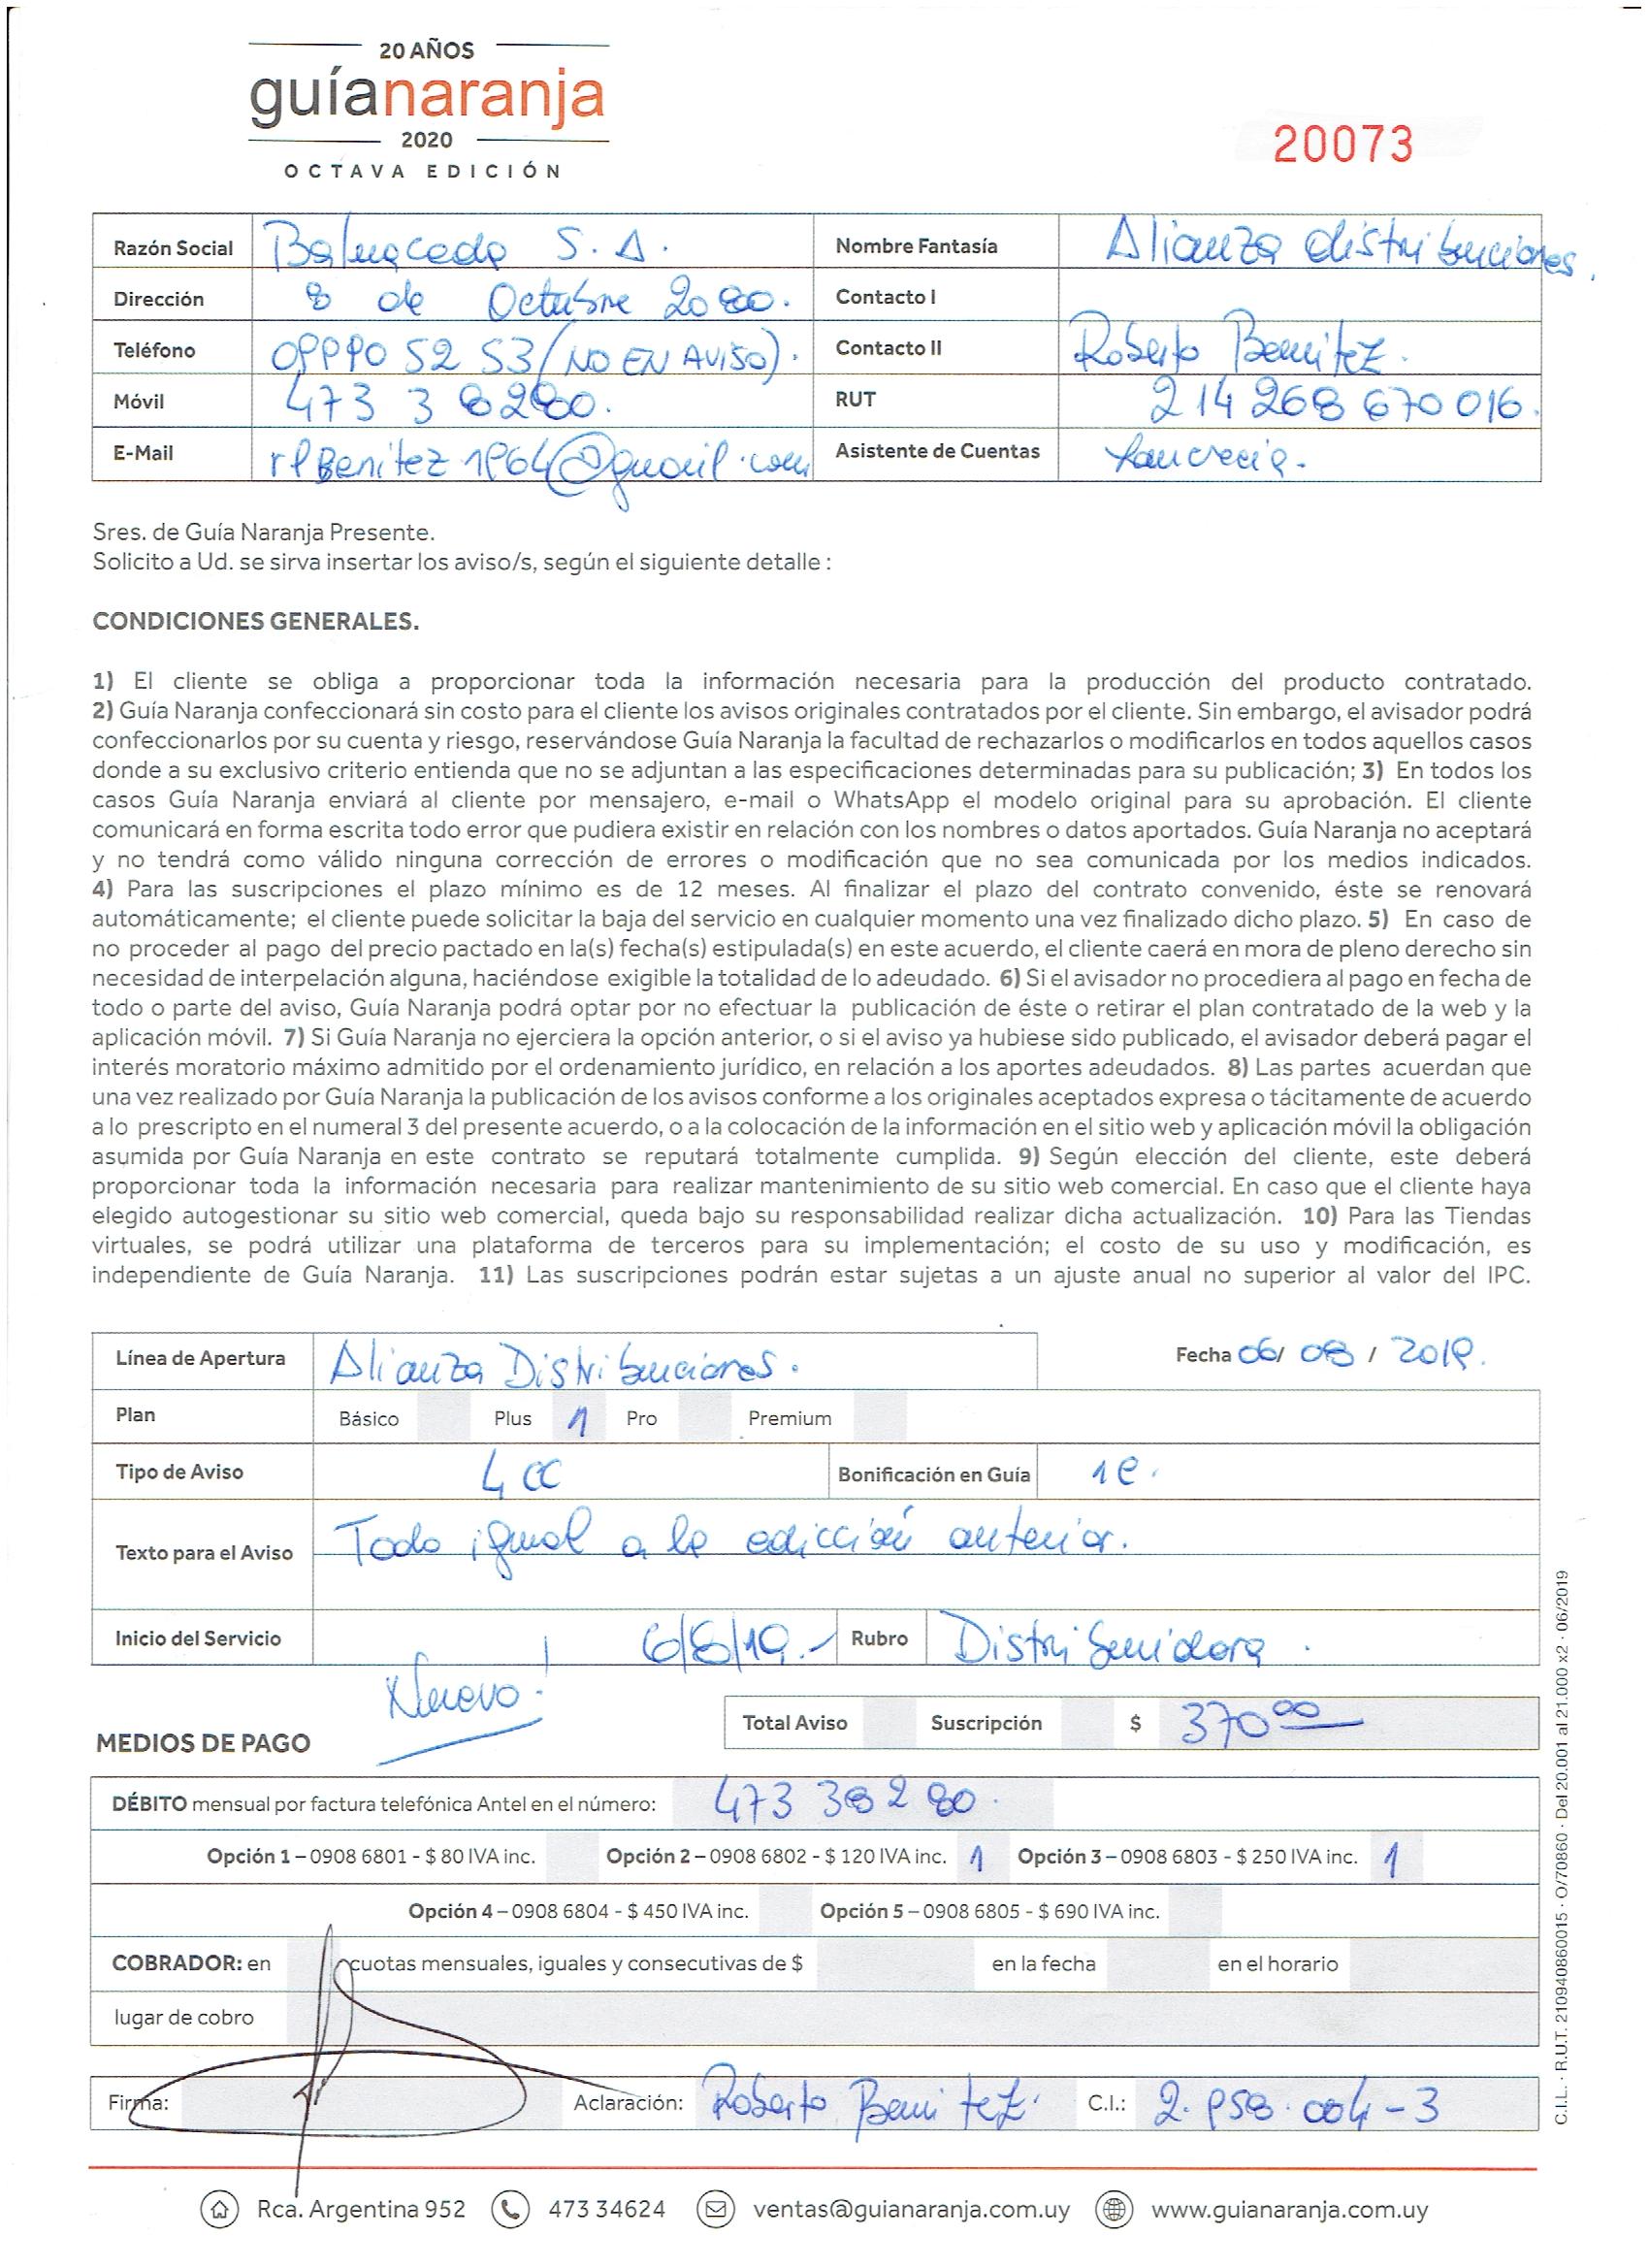 20 AÑOS
guíanaranja
2020
OCTAVA EDICIÓN
20073
Razón Social Balmaceda S.A. Nombre Fantasía Alianza distribuciones.
Dirección 8 de Octubre 2080. Contacto I
Teléfono 09990 52 53 (NO EN AVISO). Contacto II Roberto Benitez.
Móvil 473 38280. RUT 214 268 670 016.
E-Mail rlBenitez1964@gmail.com Asistente de Cuentas
Sres. de Guía Naranja Presente.
Solicito a Ud. se sirva insertar los aviso/s, según el siguiente detalle :
CONDICIONES GENERALES.
1) El cliente se obliga a proporcionar toda la información necesaria para la producción del producto contratado.
2) Guía Naranja confeccionará sin costo para el cliente los avisos originales contratados por el cliente. Sin embargo, el avisador podrá
confeccionarlos por su cuenta y riesgo, reservándose Guía Naranja la facultad de rechazarlos o modificarlos en todos aquellos casos
donde a su exclusivo criterio entienda que no se adjuntan a las especificaciones determinadas para su publicación; 3) En todos los
casos Guía Naranja enviará al cliente por mensajero, e-mail o WhatsApp el modelo original para su aprobación. El cliente
comunicará en forma escrita todo error que pudiera existir en relación con los nombres o datos aportados. Guía Naranja no aceptará
y no tendrá como válido ninguna corrección de errores o modificación que no sea comunicada por los medios indicados.
4) Para las suscripciones el plazo mínimo es de 12 meses. Al finalizar el plazo del contrato convenido, éste se renovará
automáticamente; el cliente puede solicitar la baja del servicio en cualquier momento una vez finalizado dicho plazo. 5) En caso de
no proceder al pago del precio pactado en la(s) fecha(s) estipulada(s) en este acuerdo, el cliente caerá en mora de pleno derecho sin
necesidad de interpelación alguna, haciéndose exigible la totalidad de lo adeudado. 6) Si el avisador no procediera al pago en fecha de
todo o parte del aviso, Guía Naranja podrá optar por no efectuar la publicación de éste o retirar el plan contratado de la web y la
aplicación móvil. 7) Si Guía Naranja no ejerciera la opción anterior, o si el aviso ya hubiese sido publicado, el avisador deberá pagar el
interés moratorio máximo admitido por el ordenamiento jurídico, en relación a los aportes adeudados. 8) Las partes acuerdan que
una vez realizado por Guía Naranja la publicación de los avisos conforme a los originales aceptados expresa o tácitamente de acuerdo
a lo prescripto en el numeral 3 del presente acuerdo, o a la colocación de la información en el sitio web y aplicación móvil la obligación
asumida por Guía Naranja en este contrato se reputará totalmente cumplida. 9) Según elección del cliente, este deberá
proporcionar toda la información necesaria para realizar mantenimiento de su sitio web comercial. En caso que el cliente haya
elegido autogestionar su sitio web comercial, queda bajo su responsabilidad realizar dicha actualización. 10) Para las Tiendas
virtuales, se podrá utilizar una plataforma de terceros para su implementación; el costo de su uso y modificación, es
independiente de Guía Naranja. 11) Las suscripciones podrán estar sujetas a un ajuste anual no superior al valor del IPC.
Línea de Apertura Alianza Distribuciones. Fecha 06/ 08 / 2019.
Plan Básico Plus 1 Pro Premium
Tipo de Aviso 4 CC Bonificación en Guía
Texto para el Aviso Todo igual a la edicción anterior.
Inicio del Servicio 6/8/19.- Rubro Distribuidora.
Nuevo!
Total Aviso Suscripción $ 370 00
MEDIOS DE PAGO
DÉBITO mensual por factura telefónica Antel en el número: 473 38280.
Opción 1 – 0908 6801 - $ 80 IVA inc. Opción 2 – 0908 6802 - $ 120 IVA inc. 1 Opción 3 – 0908 6803 - $ 250 IVA inc. 1
Opción 4 – 0908 6804 - $ 450 IVA inc. Opción 5 – 0908 6805 - $ 690 IVA inc.
COBRADOR: en cuotas mensuales, iguales y consecutivas de $ en la fecha en el horario
lugar de cobro
Firma: Aclaración: Roberto Benitez. C.I.: 2.958.004-3
Rca. Argentina 952 473 34624 ventas@guianaranja.com.uy www.guianaranja.com.uy
C.I.L. · R.U.T. 210940860015 · O/70860 · Del 20.001 al 21.000 x2 · 06/2019